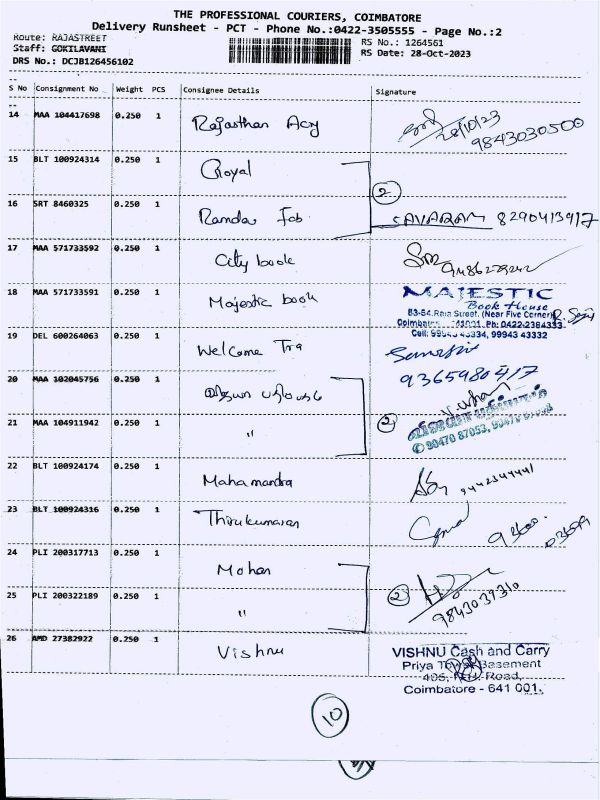 THE PROFESSIONAL COURIERS, COIMBATORE
Delivery Runsheet - PCT - Phone No.:0422-3505555 - Page No.:2
Route: RAJASTREET
RS No.: 1264561
Staff: GOKILAVANI
RS Date: 28-Oct-2023
DRS No.: DCJB126456102
S No Consignment No Weight PCS Consignee Details Signature
14 MAA 104417698 0.250 1 Rajasthan Acry 28/10/23
9843030500
15 BLT 100924314 0.250 1 Royal
2
16 SRT 8460325 0.250 1 Ramdev Fab. SAVARAM 8290413917
17 MAA 571733592 0.250 1 City book
18 MAA 571733591 0.250 1 Majestic book MAJESTIC
Book House
53-54, Raja Street, (Near Five Corner)
Coimbatore 641001. Ph: 0422-2384333
Cell: 43334, 99943 43332
19 DEL 600264063 0.250 1 Welcome Tra
9365980417
20 MAA 102045756 0.250 1
21 MAA 104911942 0.250 1 " 2
90470 87053,
22 BLT 100924174 0.250 1 Mahamandra
23 BLT 100924316 0.250 1 Thirukumaran
24 PLI 200317713 0.250 1 Mohan
2
25 PLI 200322189 0.250 1 "
26 AMD 27382922 0.250 1 Vishnu VISHNU Cash and Carry
Priya Tower Basement
Road,
Coimbatore - 641 001.
10